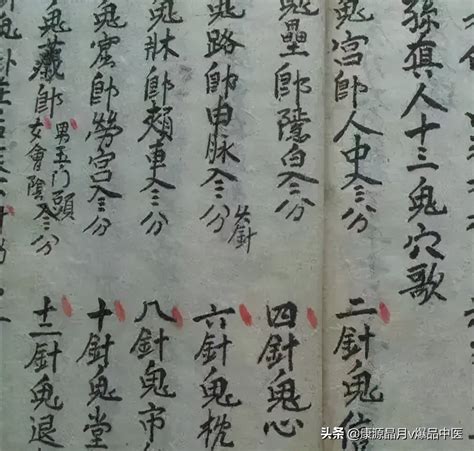 孫真人十三鬼穴歌
鬼宮即人中入三分
二針鬼信
鬼壘即隱白入三分
四針鬼心
鬼路即申脉入三分火針
六針鬼枕
鬼牀即頰車入三分
八針鬼市
鬼窟即勞宮入三分
十針鬼堂
鬼藏即
男玉门頭
女會陰入三分
十二針鬼退
头条 @康源晶月v爆品中医